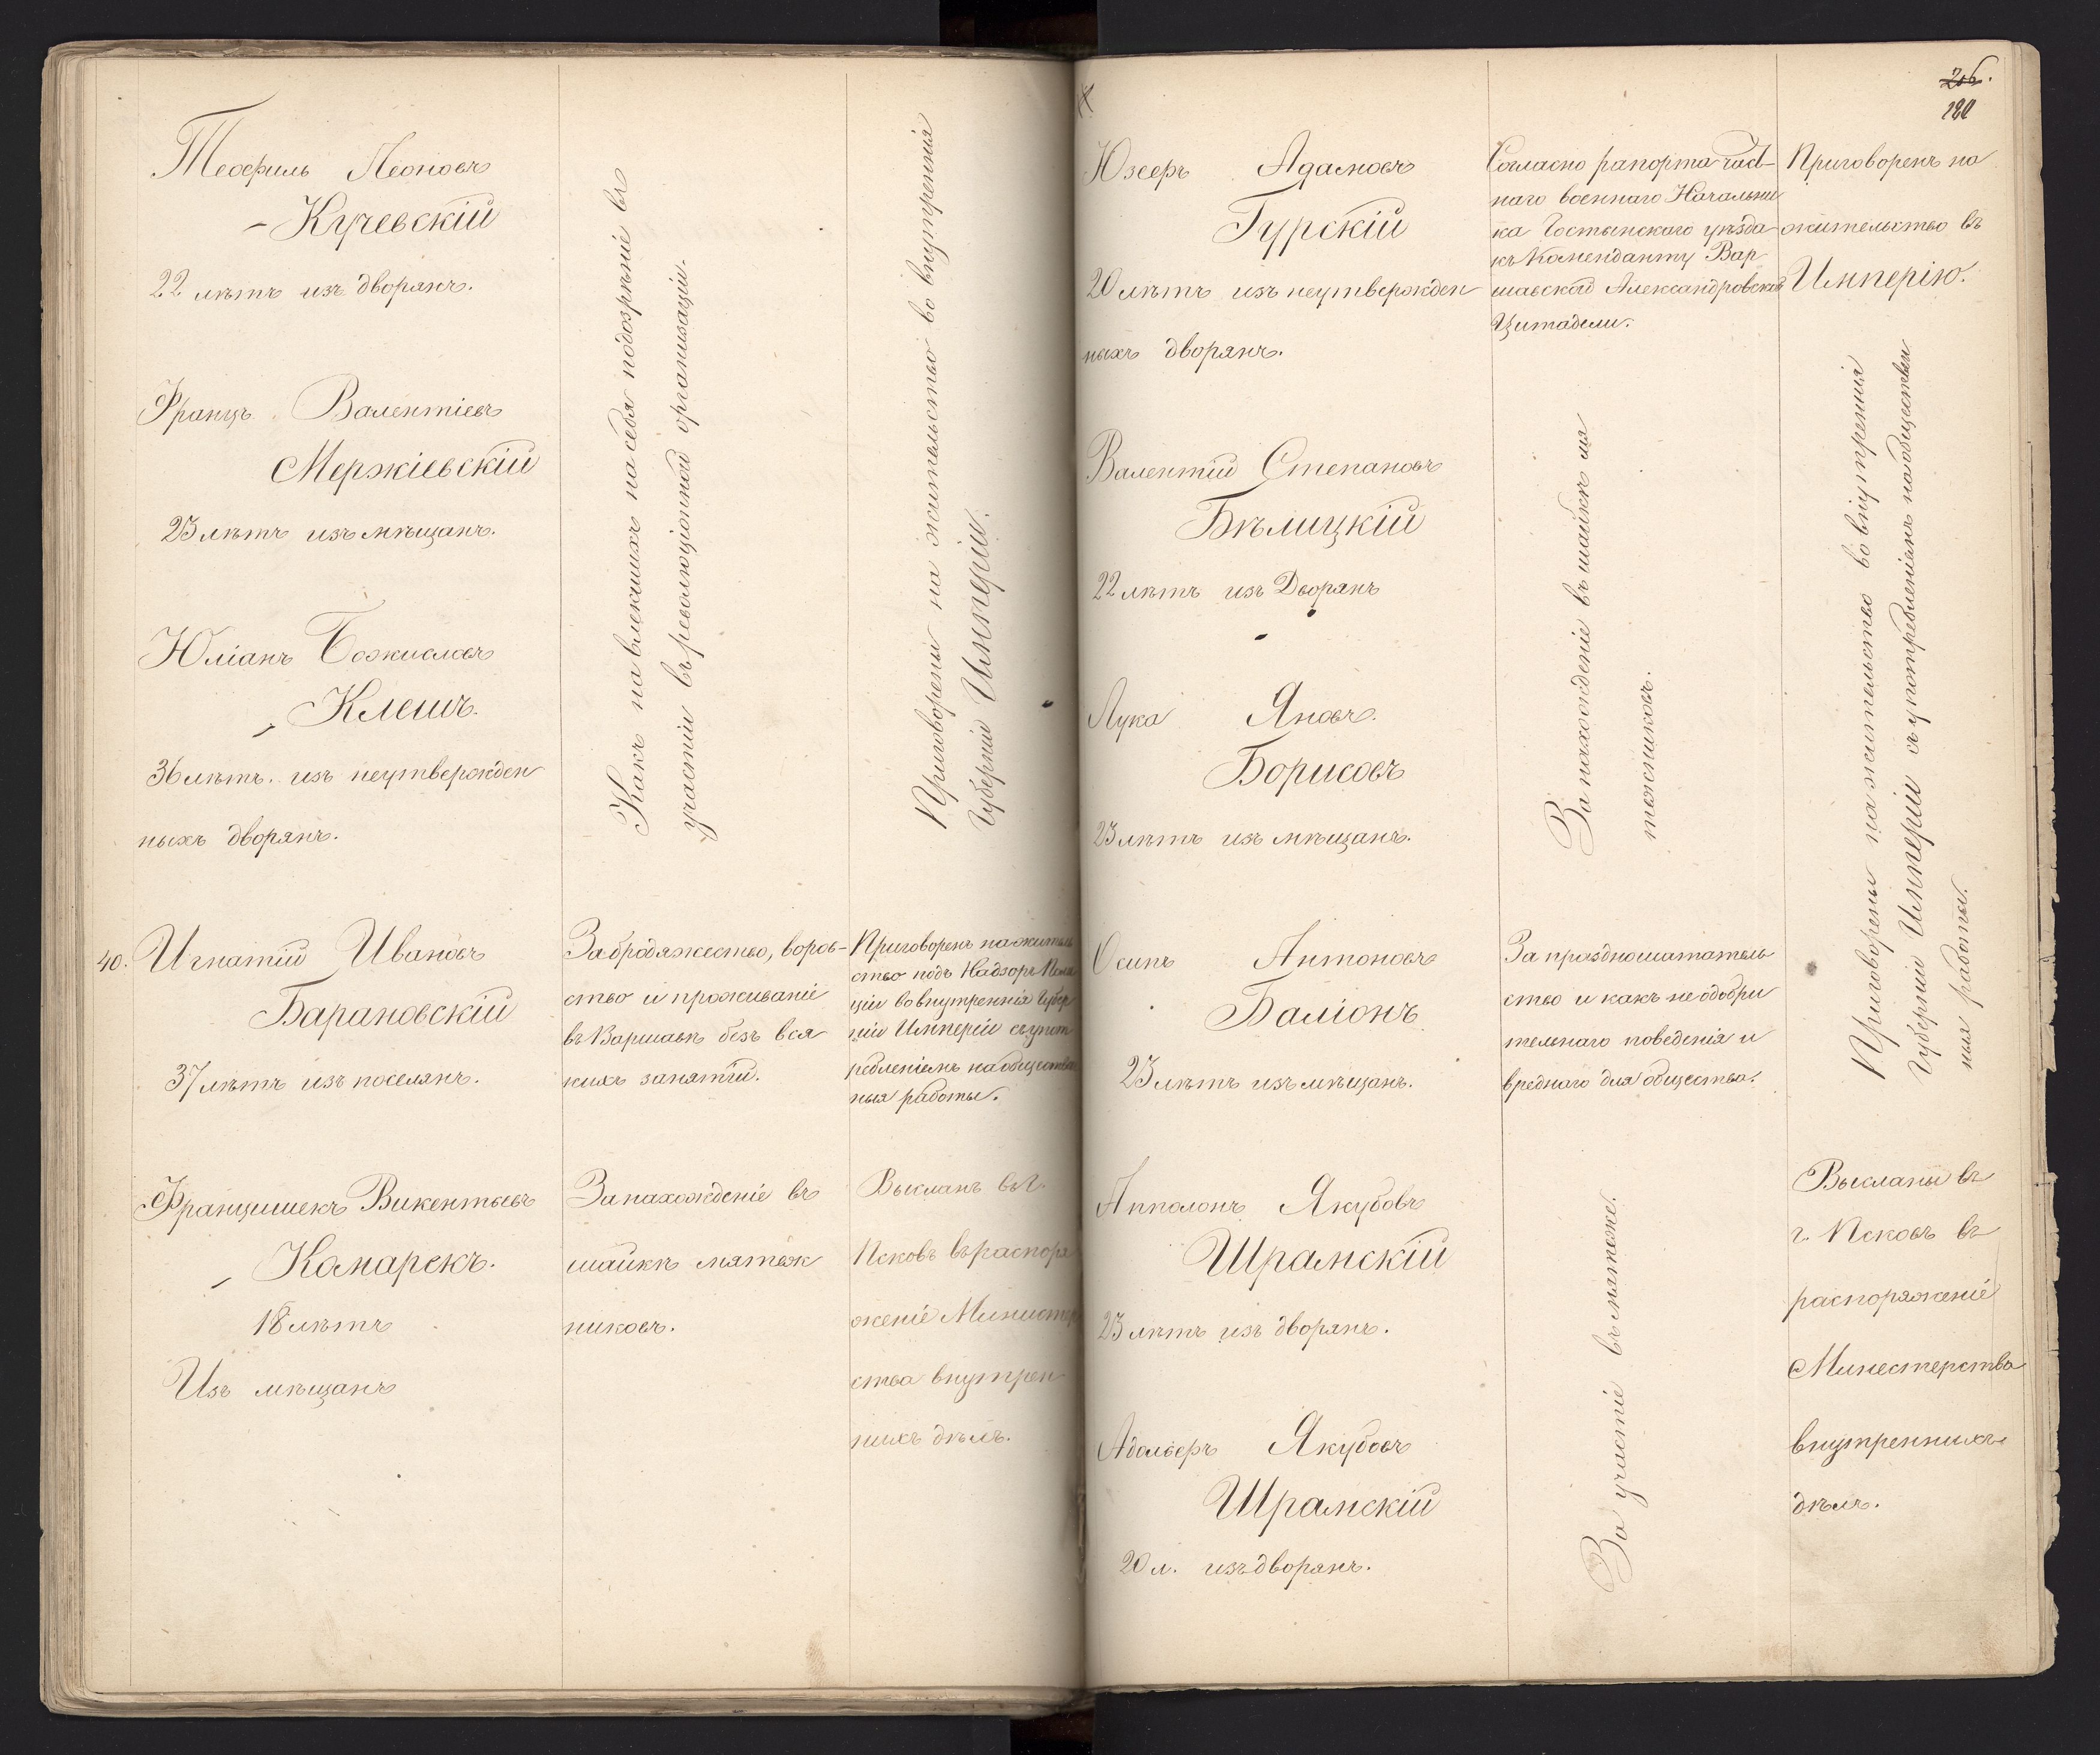 Теофиль Леоновъ
Кучевскій
22 лѣтъ изъ дворянъ.
Францъ Валентіевъ
Мержіевскій
23 лѣтъ изъ мѣщанъ.
Юліанъ
Клешъ.
36 лѣтъ. изъ неутвержден
ныхъ дворянъ.
Какъ навлекшихъ на себя подозрѣніе въ
участіи въ революціонной организаціи.
Приговорены на жительство во внутреннія
Губерніи Имперіи.
40. Игнатій Ивановъ
Барановскій
37 лѣтъ изъ поселянъ.
За бродяжество, воров-
ство и проживаніе
въ Варшавѣ безъ вся
кихъ занятій.
Приговоренъ на житель
ство подъ Надзоръ Поли
ціи во внутреннія Губер
ніи Имперіи съ упот
ребленіемъ на обществен
ныя работы.
Францишекъ Викентьевъ
Комарекъ.
18 лѣтъ
Изъ мѣщанъ
За нахожденіе въ
шайкѣ мятеж
никовъ.
Высланъ въ г.
Псковъ въ распоря
женіе Министер
ства внутрен
нихъ дѣлъ.
206.
120
Юзефъ Адамовъ
Гурскій
20 лѣтъ изъ неутвержден
ныхъ дворянъ.
Согласно рапорта
наго военнаго Начальни
ка Гостынскаго уѣзда
къ Коменданту Вар
шавской Александровской
Цитадели.
Приговоренъ на
жительство въ
Имперію.
Валентій Степановъ
Бѣлицкій
22 лѣтъ изъ Дворянъ
Лука Яновъ.
Борисовъ
23 лѣтъ изъ мѣщанъ.
За нахожденіе въ шайкѣ мя
тежниковъ.
Осипъ Антоновъ
Баліонъ
23 лѣтъ изъ мѣщанъ.
За праздношататель
ство и какъ неодобри
тельнаго поведенія и
вреднаго для общества.
Приговорены на жительство во внутреннія
Губерніи Имперіи съ употребленіемъ на обществен
ныя работы.
Апполонъ Якубовъ
Шрамскій
23 лѣтъ изъ дворянъ.
Адольфъ Якубовъ
Шрамскій
20 л. изъ дворянъ.
За участіе въ мятеже.
Высланы въ
г. Псковъ въ
распоряженіе
Минестерства
внутреннихъ
дѣлъ.